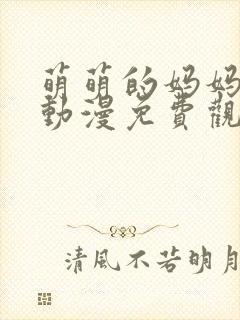 萌萌的妈妈
動漫免費觀
清風不若明月